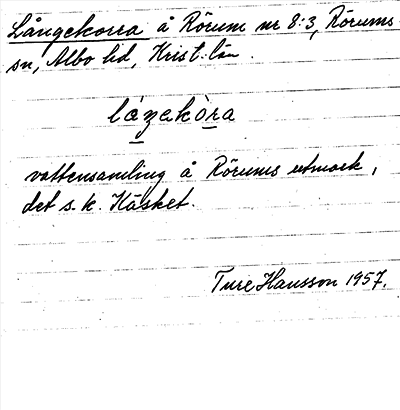 Långekorra å Rörum nr 8:3, Rörums
sn, Albo hd, Krist. län.
lázekòra
vattensamling å Rörums utmark,
det s.k. Käsket.
Ture Hansson 1957.